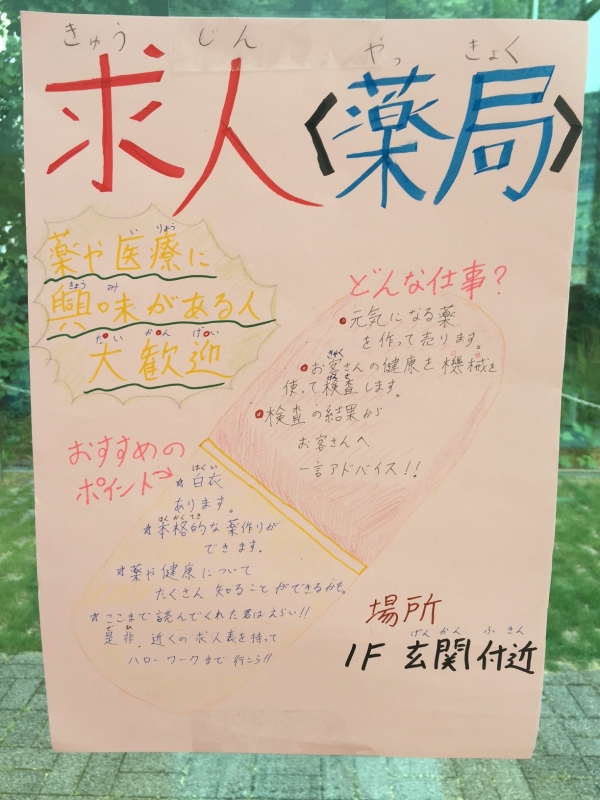 きゅうじん やっきょく
求人〈薬局〉
いりょう
薬や医療に
きょうみ
興味がある人
だいかんげい
大歓迎
どんな仕事?
元気になる薬
を作って売ります。
きゃく
お客さんの健康を機械を
けんさ
使って検査します。
検査の結果から
お客さんへ
一言アドバイス!!
おすすめの
ポイント→
はくい
☆白衣
あります。
ほんかくてき
☆本格的な薬作りが
できます。
☆薬や健康について
たくさん知ることができるかも。
☆ここまで読んでくれた君はえらい!!
ぜひ
是非、近くの求人表を持って
ハローワークまで行こう!!
場所
げんかん ふきん
1F 玄関付近